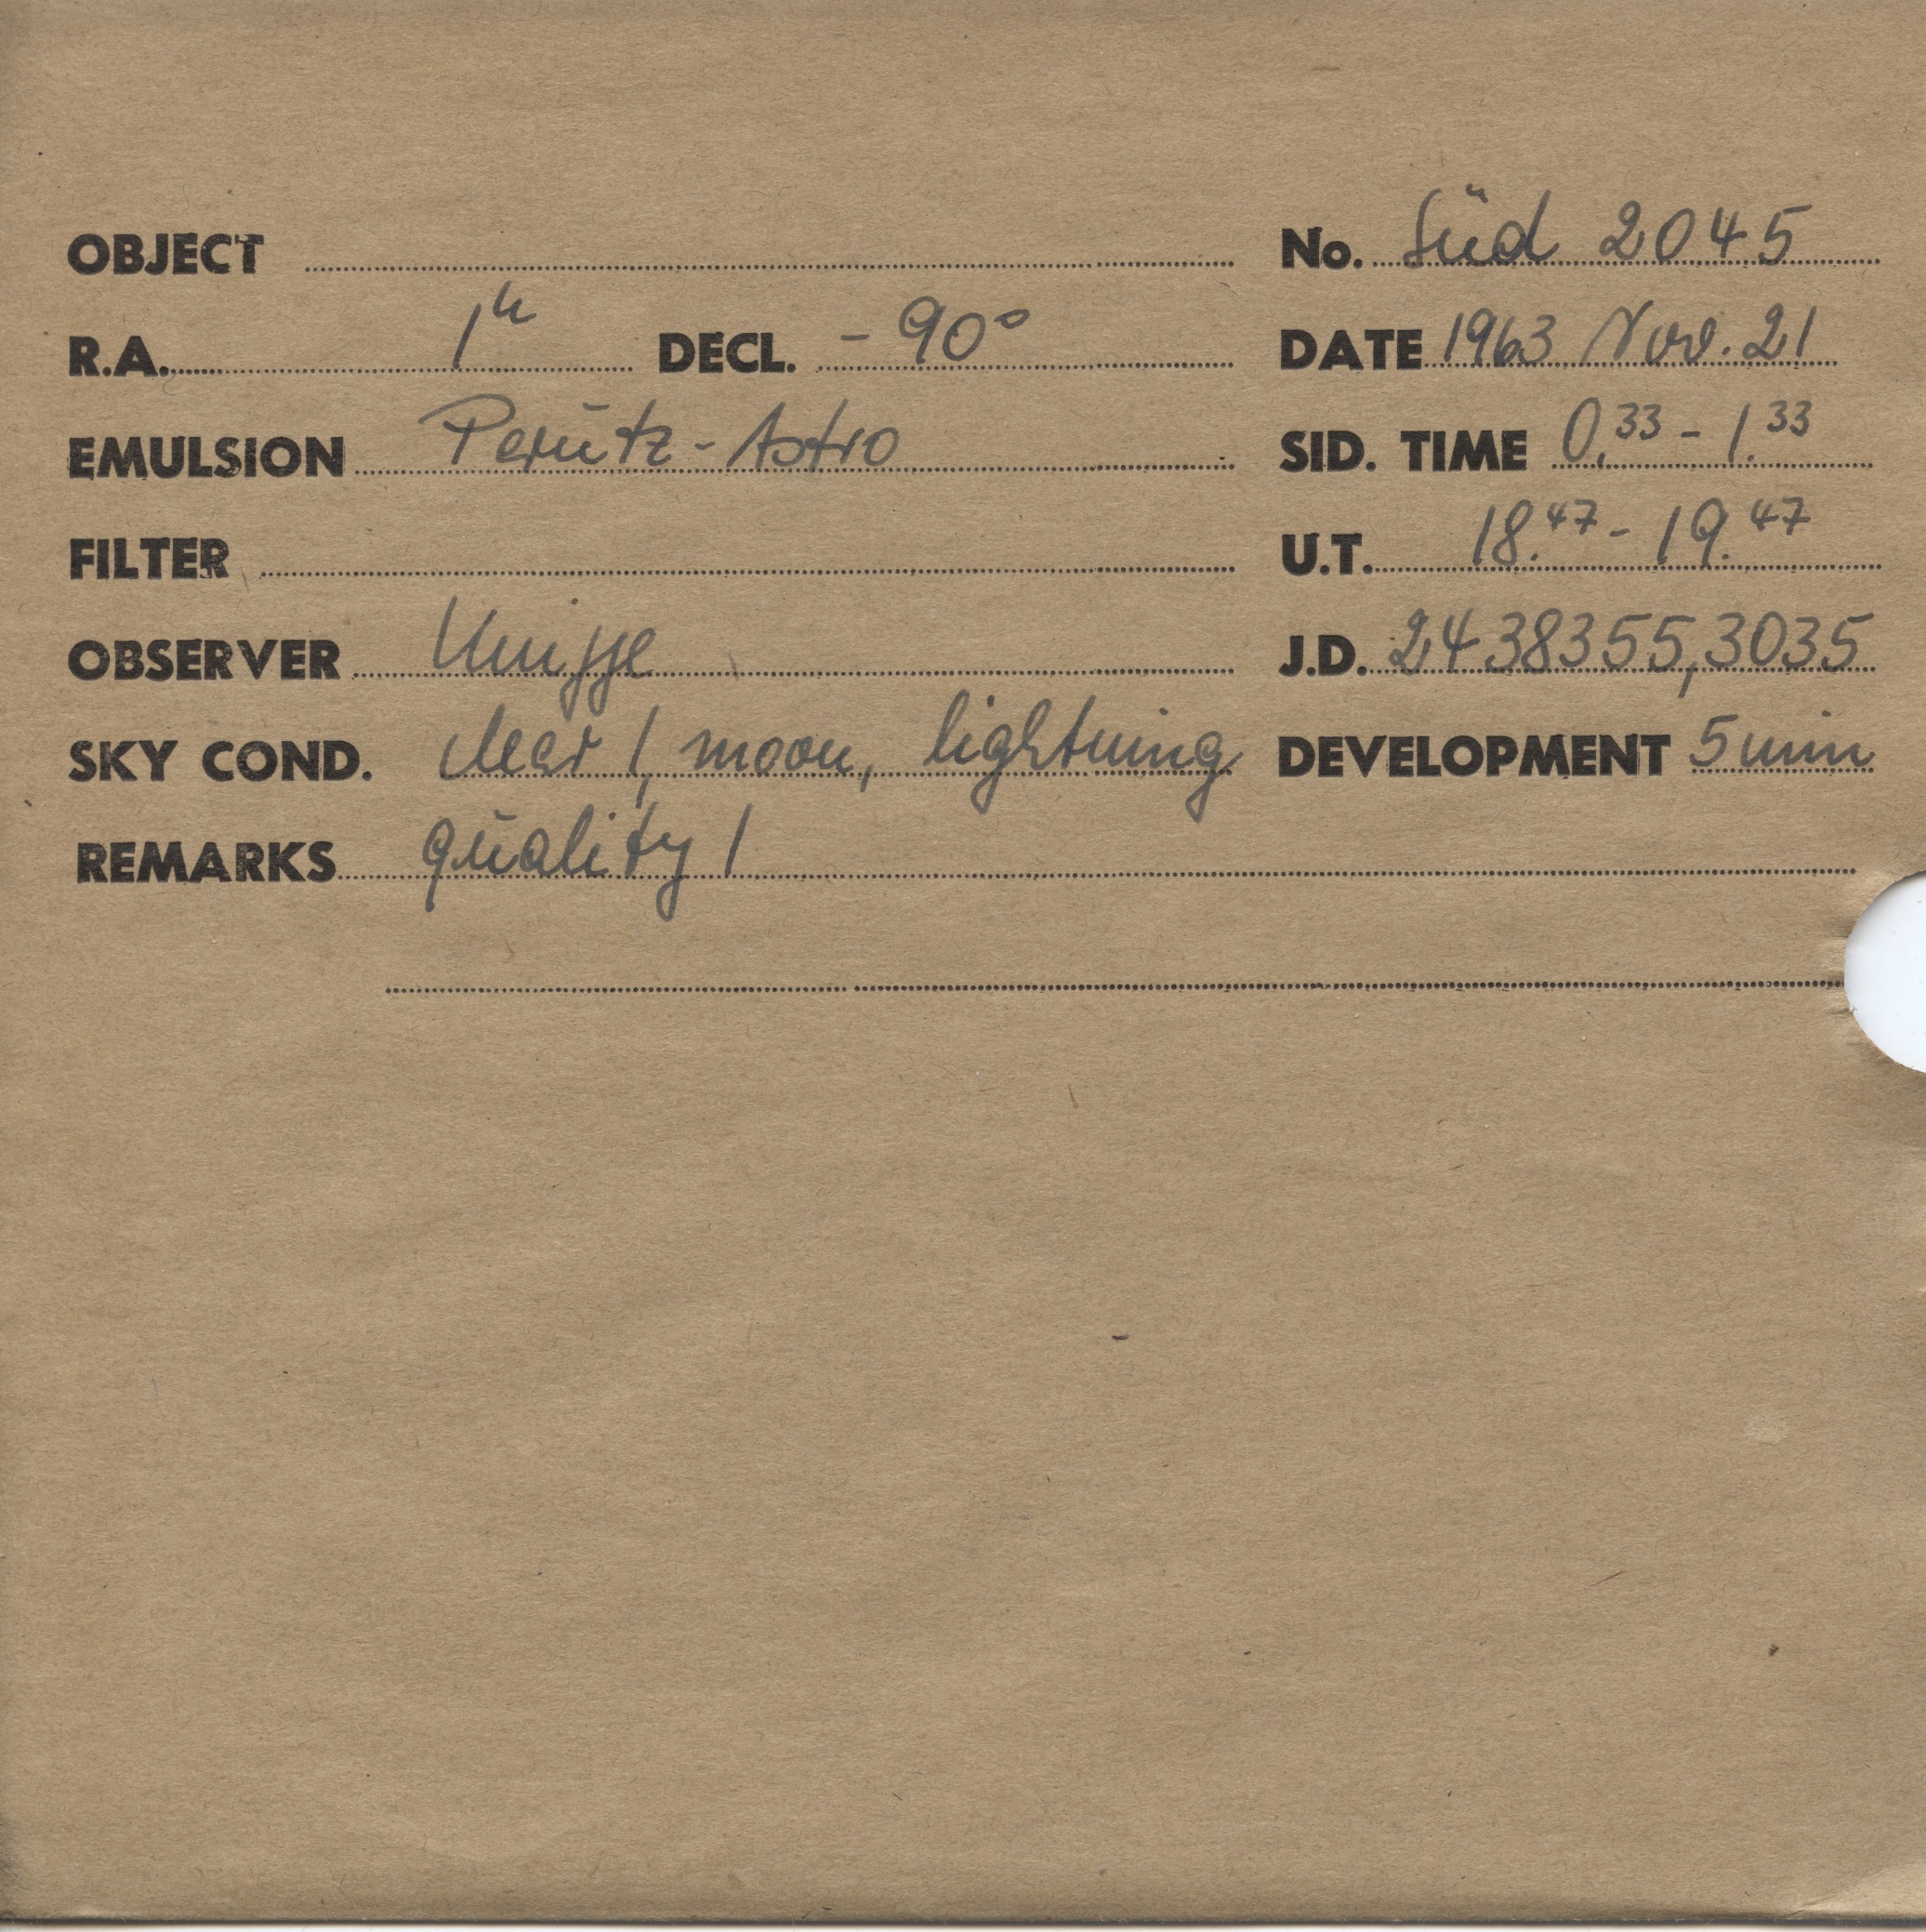 OBJECT No. Süd 2045
R.A. 1ʰ DECL. -90° DATE 1963 Nov. 21
EMULSION Perutz-Astro SID. TIME 0.³³ - 1.³³
FILTER U.T. 18.⁴⁷ - 19.⁴⁷
OBSERVER Knigge J.D. 2438355,3035
SKY COND. clear 1, moon, lightning DEVELOPMENT 5 min
REMARKS quality 1